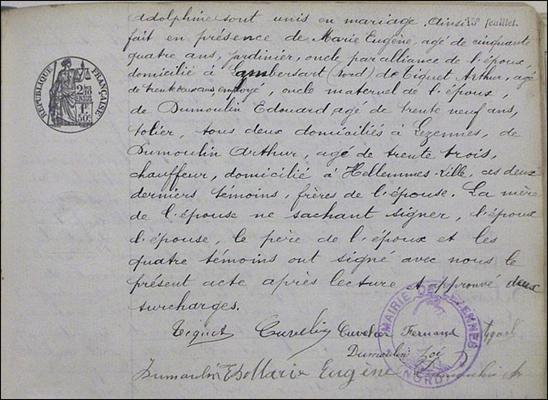 Adolphine sont unis en mariage, Ainsi feuillet.
fait en présence de Marie Eugène, agé de cinquante
quatre ans, jardinier, oncle par alliance de l'époux,
domicilié à Lambersart (Nord) de Tiquet Arthur, agé
de trente ans employé, oncle maternel de l'époux,
de Dumoulin Edouard agé de trente neuf ans,
tolier, tous deux domiciliés à Lezennes, de
Dumoulin Arthur, agé de trente trois,
chauffeur, domicilié à Hellemmes-Lille, ces deux
derniers témoins, frères de l'épouse. La mère
de l'épouse ne sachant signer, l'époux
l'épouse, le père de l'époux et les
quatre témoins ont signé avec nous le
présent acte après lecture et approuvé deux
surcharges.
Tiquet Cuvelier Cuvelier Fernand
Dumoulin Zoé
Dumoulin E Marie Eugène Dumoulin
RÉPUBLIQUE FRANÇAISE
MAIRIE DE LEZENNES
(NORD)